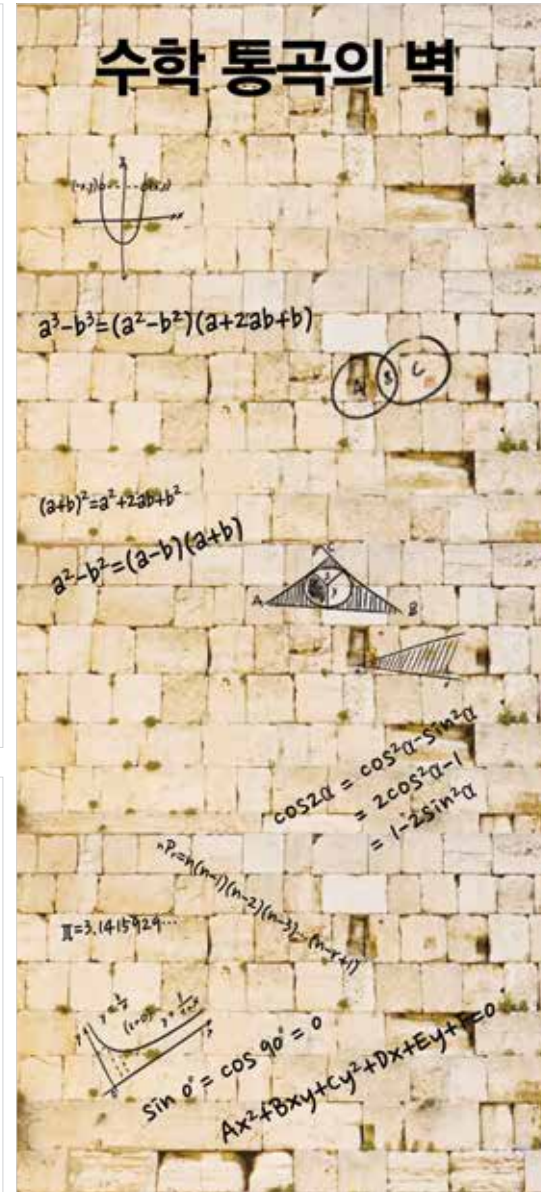 수학 통곡의 벽
a³-b³=(a²-b²)(a+2ab+b)
A B C
(a+b)²=a²+2ab+b²
a²-b²=(a-b)(a+b)
C
A
B
cos2α = cos²α-sin²α
= 2cos²α-1
= 1-2sin²α
ₙPᵣ=n(n-1)(n-2)(n-3)...(n-r+1)
π=3.1415924...
sin 0° = cos 90° = 0
Ax²+Bxy+Cy²+Dx+Ey+F=0